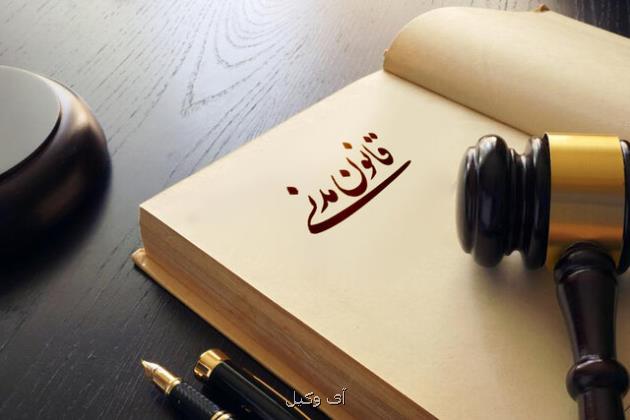 قانون مدنی
آی وکیل